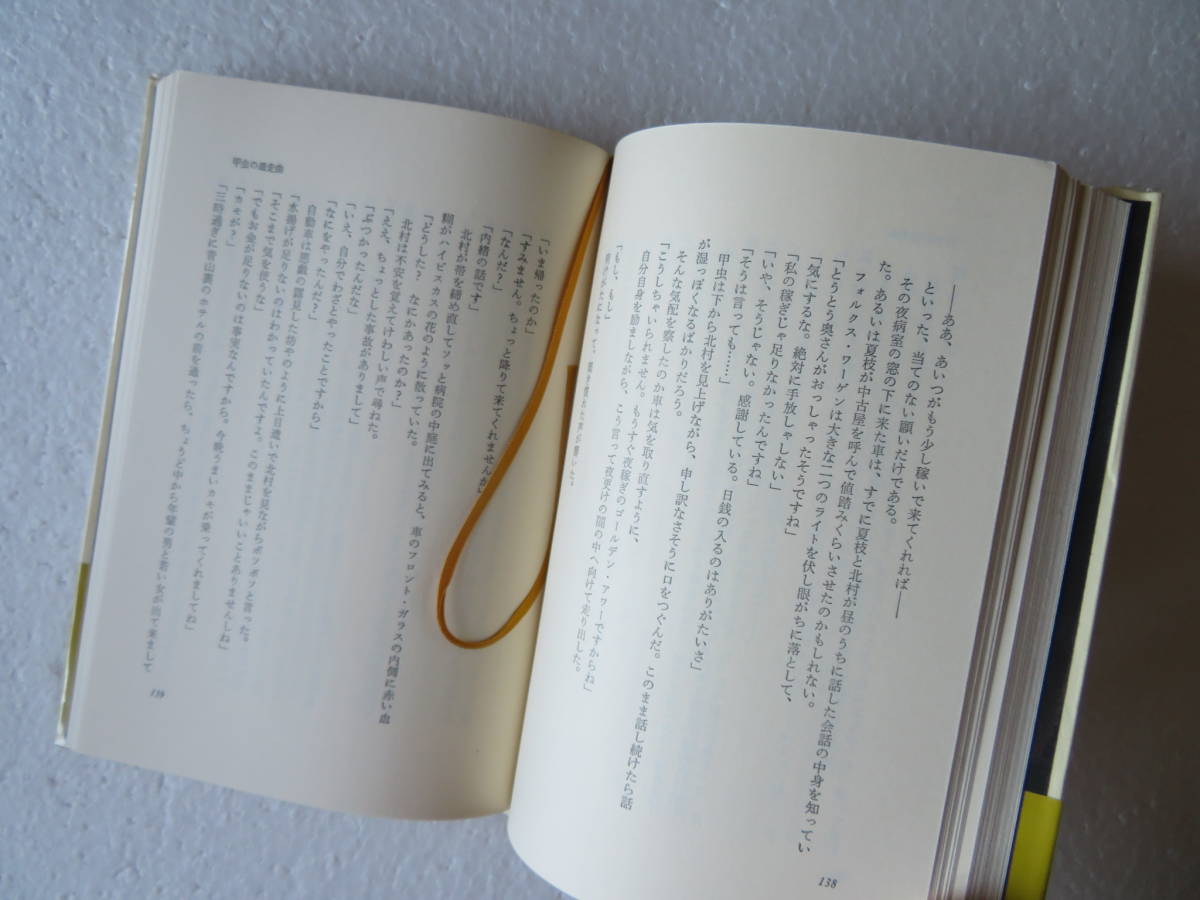 ――ああ、あいつがもう少し稼いで来てくれれば――
といった、当てのない願いだけである。
その夜病室の窓の下に来た車は、すでに夏枝と北村が昼のうちに話した会話の中身を知ってい
た。あるいは夏枝が中古屋を呼んで値踏みくらいさせたのかもしれない。
フォルクス・ワーゲンは大きな二つのライトを伏し眼がちに落として、
「とうとう奥さんがおっしゃったそうですね」
「気にするな。絶対に手放しゃしない」
「私の稼ぎじゃ足りなかったんですね」
「いや、そうじゃない。感謝している。日銭の入るのはありがたいさ」
「そうは言っても……」
甲虫は下から北村を見上げながら、申し訳なさそうに口をつぐんだ。このまま話し続けたら話
が湿っぽくなるばかりだろう。
そんな気配を察したのか車は気を取り直すように、
「こうしちゃいられません。もうすぐ夜稼ぎのゴールデン・アワーですからね」
自分自身を励ましながら、こう言って夜更けの闇の中へ向けて走り出した。
「もし、もし」
明けがたになって、聞き慣れた声が響いた。
138
甲虫の遁走曲
「いま帰ったのか」
「すみません。ちょっと降りて来てくれませんか」
「なんだ？」
「内緒の話です」
北村が帯を締め直してソッと病院の中庭に出てみると、車のフロント・ガラスの内側に赤い血
糊がハイビスカスの花のように散っていた。
「どうした？　なにかあったのか？」
北村は不安を覚えてけわしい声で尋ねた。
「ええ、ちょっとした事故がありまして」
「ぶつかったんだな」
「いえ、自分でわざとやったことですから」
「なにをやったんだ？」
自動車は悪戯の露見した坊やのように上目遣いで北村を見ながらポツポツと言った。
「水揚げが足りないのはわかっていたんですよ。このままじゃいいことありませんしね」
「そこまで気を使うな」
「でもお金が足りないのは事実なんですから。今晩うまいカモが乗ってくれましてね」
「カモが？」
「三時過ぎに青山裏のホテルの前を通ったら、ちょうど中から年輩の男と若い女が出て来まして
139